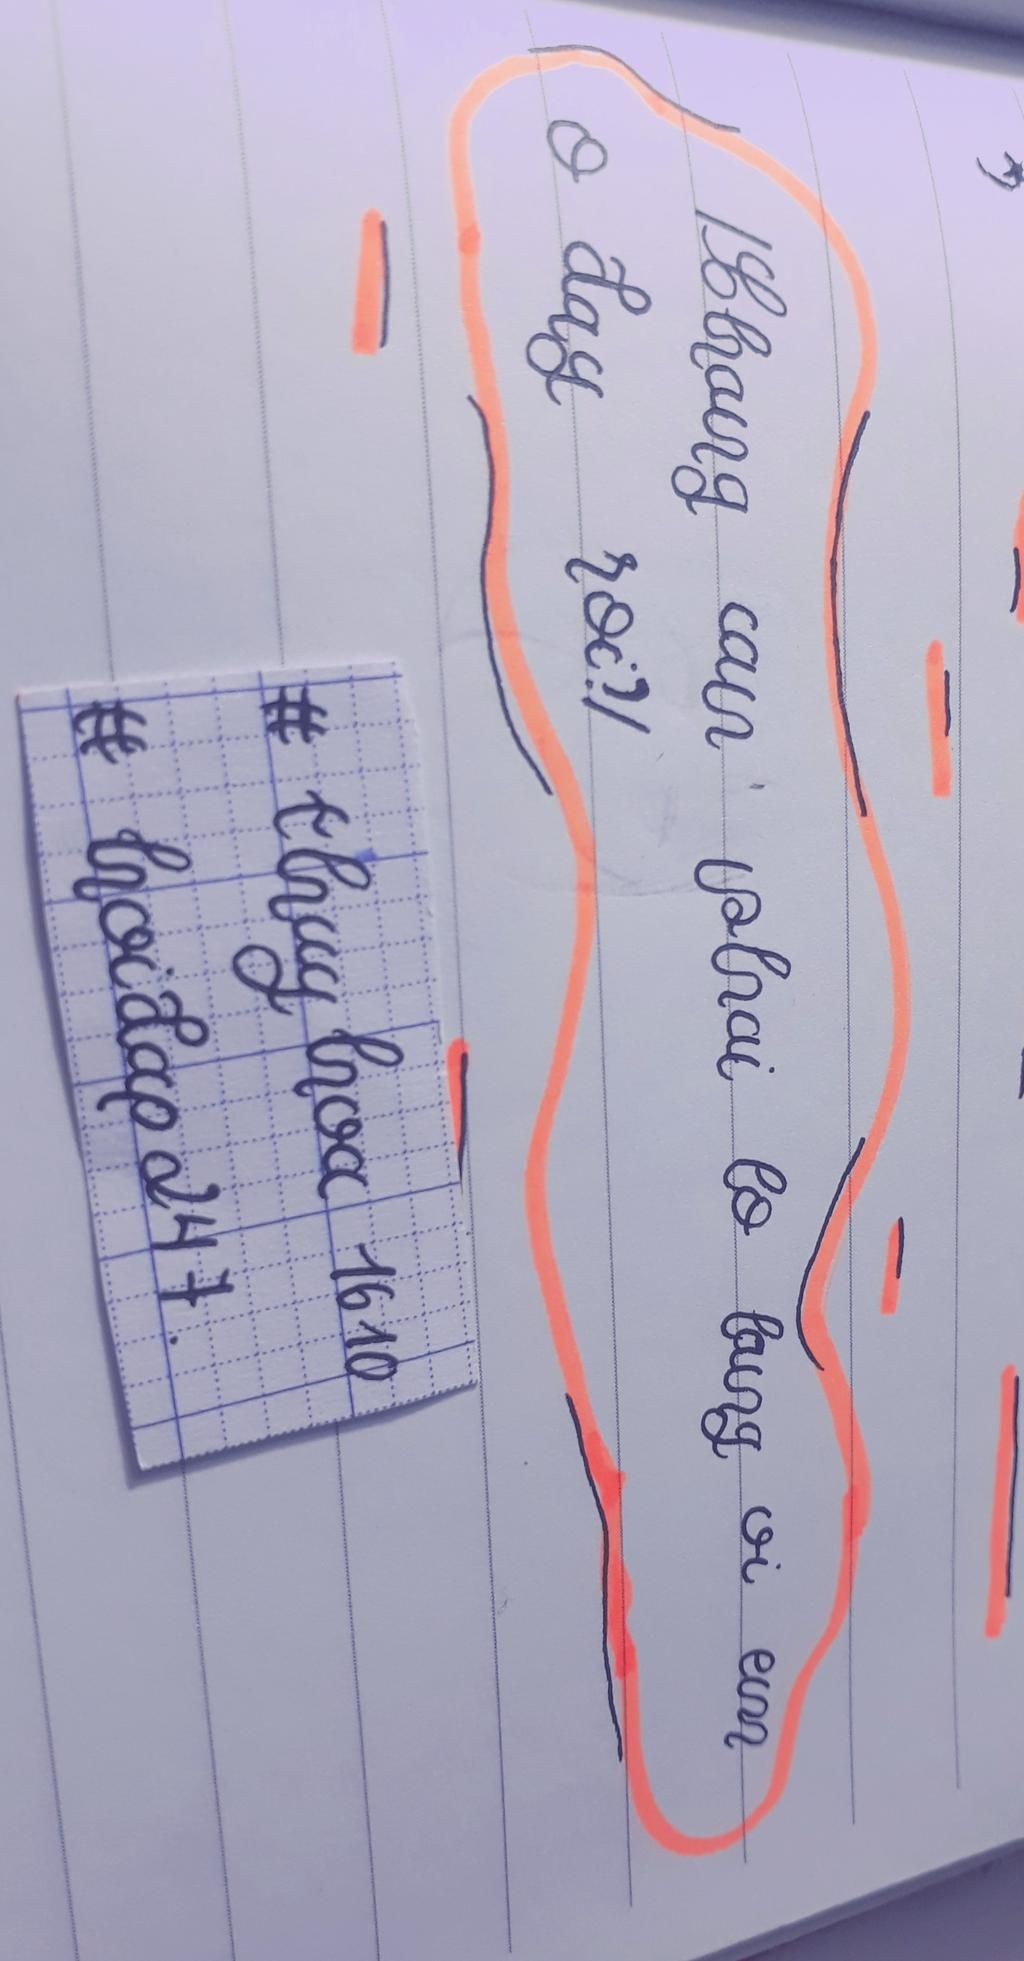 Khong can phai lo lang vi em
o day roi?!
# thuy hoa 1610
# hoidap 247.